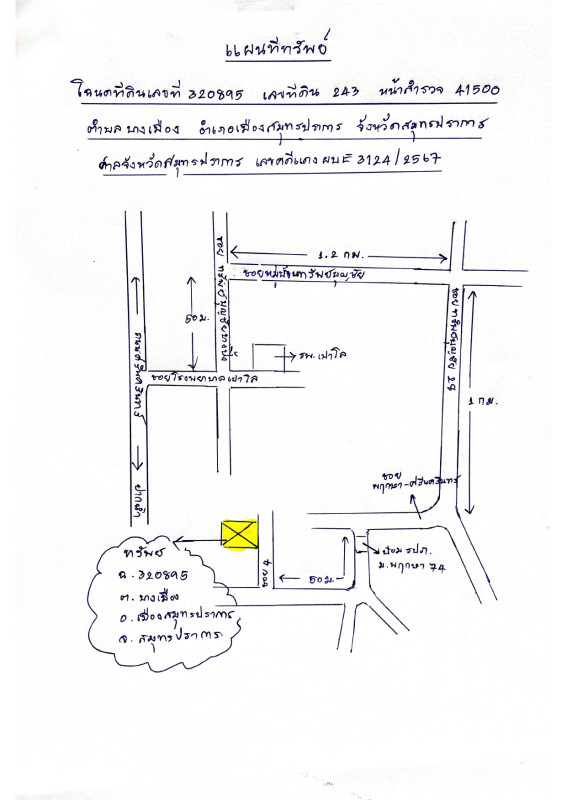 แผนที่ทรัพย์
โฉนดที่ดินเลขที่ 320895 เลขที่ดิน 243 หน้าสำรวจ 41500
ตำบลบางเมือง อำเภอเมืองสมุทรปราการ จังหวัดสมุทรปราการ
ศาลจังหวัดสมุทรปราการ เลขคดีแดง ผบE 3124/2567
1.2 กม.
ซอยหมู่บ้านทรัพย์บุญชัย
50 ม.
รพ.เปาโล
ซอยโรงพยาบาลเปาโล
ถนนศรีนครินทร์
ปากน้ำ
1 กม.
ซอย
พฤกษา-ศรีนครินทร์
ป้อม รปภ.
ม.พฤกษา 74
50 ม.
ซอย 4
ทรัพย์
ฉ. 320895
ต. บางเมือง
อ. เมืองสมุทรปราการ
จ. สมุทรปราการ